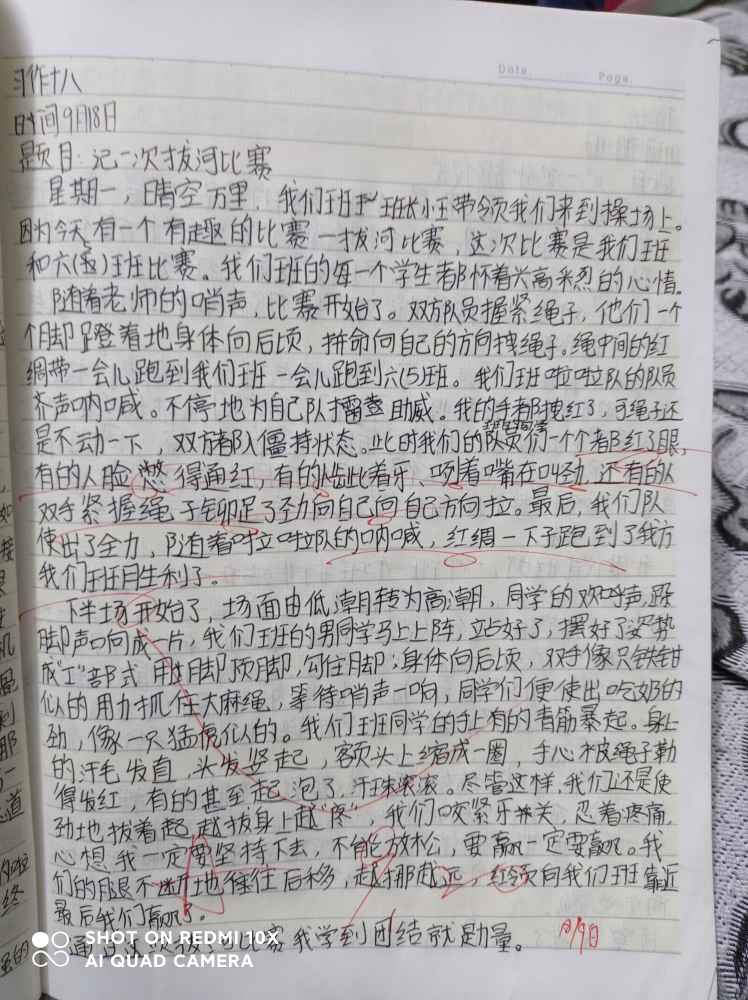 Date
Page
习作十八
时间9月18日
题目:记一次拔河比赛
星期一,晴空万里,我们班班长小王带领我们来到操场上。
因为今天有一个有趣的比赛一拔河比赛,这次比赛是我们班
和六(5)班比赛。我们班的每一个学生都怀着兴高采烈的心情。
随着老师的哨声,比赛开始了。双方队员握紧绳子,他们一个
个脚蹬着地身体向后顷,拼命向自己的方向拽绳子。绳中间的红
绸带一会儿跑到我们班一会儿跑到六(5)班。我们班啦啦队的队员
齐声呐喊。不停地为自己队擂鼓助威。我的手都拽红了,可绳子还
是不动一下,双方都队僵持状态。此时我们的队员们一个个都红了眼,
有的人脸憋得通红,有的人呲着牙、咧着嘴在叫劲,还有的人
双手紧握绳子铆足了劲向自己向自己方向拉。最后,我们队
使出了全力,随着啦啦队的呐喊,红绸一下子跑到了我方
我们班胜利了。
下半场开始了,场面由低潮转为高潮,同学的欢呼声,跺
脚声响成一片,我们班的男同学马上上阵,站好了,摆好了姿势
成“工”部式 用脚顶脚,勾住脚;身体向后顷,双手像只铁钳
似的用力抓住大麻绳,等待哨声一响,同学们便使出吃奶的
劲,像一只猛虎似的。我们班同学的手上有的青筋暴起。身上
的汗毛发直,头发竖起,额头上缩成一圈,手心被绳子勒
得发红,有的甚至起泡了,汗珠滚滚。尽管这样,我们还是使
劲地拔着起,越拔身上越“疼”,我们咬紧牙关,忍着疼痛,
心想我一定要坚持下去,不能放松,要赢一定要赢。我
们的腿不断地往后移,越挪越远,红领向我们班靠近
最后我们赢了。
通过这次拔河比赛我学到团结就是力量。
SHOT ON REDMI 10X
AI QUAD CAMERA